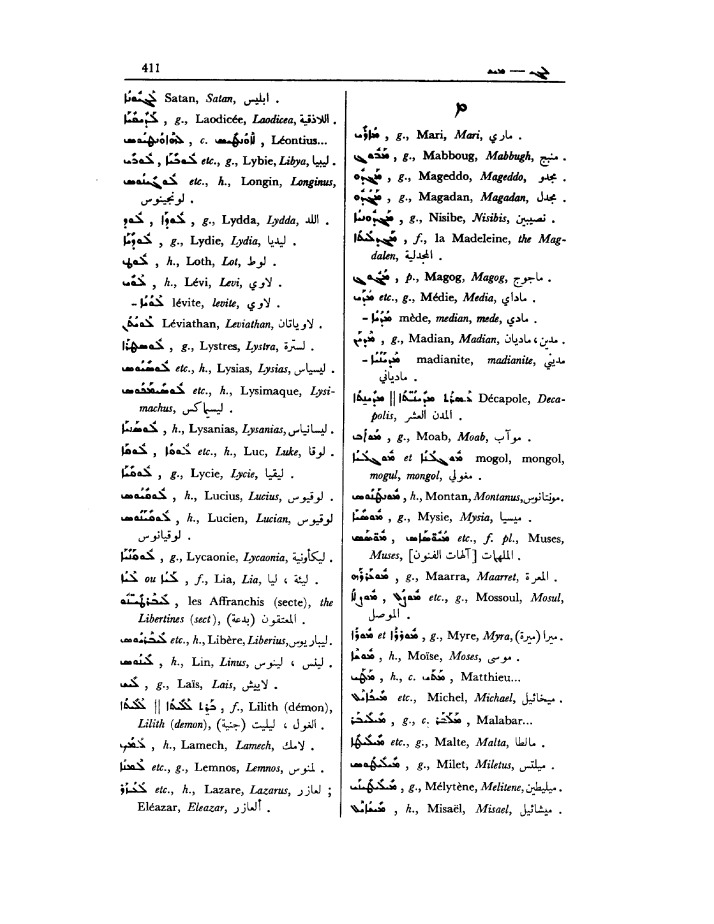 411
ܠܝܛܢܐ Satan, Satan, ابليس .
g., Laodicée, Laodicea, اللاذقية .
c. , Léontius...
ܠܘܒܐ , ܠܘܒܝ etc., g., Lybie, Libya, ليبيا .
ܠܘܢܓܝܢܘܣ etc., h., Longin, Longinus,
لونجينوس .
ܠܘܕܐ , ܠܘܕ , g., Lydda, Lydda, اللد .
ܠܘܕܝܐ , g., Lydie, Lydia, ليديا .
ܠܘܛ , h., Loth, Lot, لوط .
ܠܘܝ , h., Lévi, Levi, لاوي .
– ܠܘܝܐ lévite, levite, لاوي .
ܠܘܝܬܢ Léviathan, Leviathan, لاوياثان .
ܠܘܣܛܪܐ , g., Lystres, Lystra, لسترة .
ܠܘܣܝܘܣ etc., h., Lysias, Lysias, ليسياس .
ܠܘܣܝܡܟܘܣ etc., h., Lysimaque, Lysi-
machus, ليسماكس .
ܠܘܣܢܝܐ , h., Lysanias, Lysanias, ليسانياس .
ܠܘܩܐ , ܠܘܩܐ etc., h., Luc, Luke, لوقا .
ܠܘܩܝܐ , g., Lycie, Lycie, ليقيا .
ܠܘܩܝܘܣ , h., Lucius, Lucius, لوقيوس .
ܠܘܩܝܢܘܣ , h., Lucien, Lucian, لوقيوس
لوقيانوس .
g., Lycaonie, Lycaonia, ليكأونية .
ܠܝܐ ou ܠܝܐ , f., Lia, Lia, ليئة ، ليا .
les Affranchis (secte), the
Libertines (sect), المعتقون (بدعة) .
etc., h., Libère, Liberius, ليباريوس .
ܠܝܢܘܣ , h., Lin, Linus, لينس ، لينوس .
ܠܝܣ , g., Laïs, Lais, لاييش .
f., Lilith (démon),
Lilith (demon), الغول ، ليليت (جنية) .
ܠܡܟ , h., Lamech, Lamech, لامك .
ܠܡܢܐ etc., g., Lemnos, Lemnos, لمنوس .
ܠܥܙܪ etc., h., Lazare, Lazarus, لعازر ;
Eléazar, Eleazar, ألعازر .
ܡ
ܡܐܪܝ , g., Mari, Mari, ماري .
ܡܒܘܓ , g., Mabboug, Mabbugh, منبج .
ܡܓܕܘ , g., Mageddo, Mageddo, مجدو .
g., Magadan, Magadan, مجدل .
g., Nisibe, Nisibis, نصيبين .
ܡܓܕܠܝܬܐ , f., la Madeleine, the Mag-
dalen, المجدلية .
ܡܓܘܓ , p., Magog, Magog, ماجوج .
ܡܕܝ etc., g., Médie, Media, ماداي .
– ܡܕܝܐ mède, median, mede, مادي .
ܡܕܝܢ , g., Madian, Madian, مدين ، ماديان .
– ܡܕܝܢܝܐ madianite, madianite, مديني
مادياني .
Décapole, Deca-
polis, المدن العشر .
ܡܘܐܒ , g., Moab, Moab, موآب .
ܡܘܓܠܝܐ et ܡܘܓܠܝܐ mogol, mongol,
mogul, mongol, مغولي .
h., Montan, Montanus, مونتانوس .
ܡܘܣܝܐ , g., Mysie, Mysia, ميسيا .
etc., f. pl., Muses,
Muses, الملهيات [آلهات الفنون] .
etc., g., Mossoul, Mosul,
الموصل .
g., Maarra, Maarret, المعرة .
ܡܘܪܐ et g., Myre, Myra, ميرا (ميرة) .
ܡܘܫܐ , h., Moïse, Moses, موسى .
ܡܬܝ , h., c. Matthieu...
ܡܝܟܐܝܠ etc., Michel, Michael, ميخائيل .
g., c. Malabar...
etc., g., Malte, Malta, مالطا .
ܡܝܠܝܛܘܣ , g., Milet, Miletus, ميلتس .
g., Mélytène, Melitene, ميليطين .
ܡܝܫܐܝܠ , h., Misaël, Misael, ميشائيل .